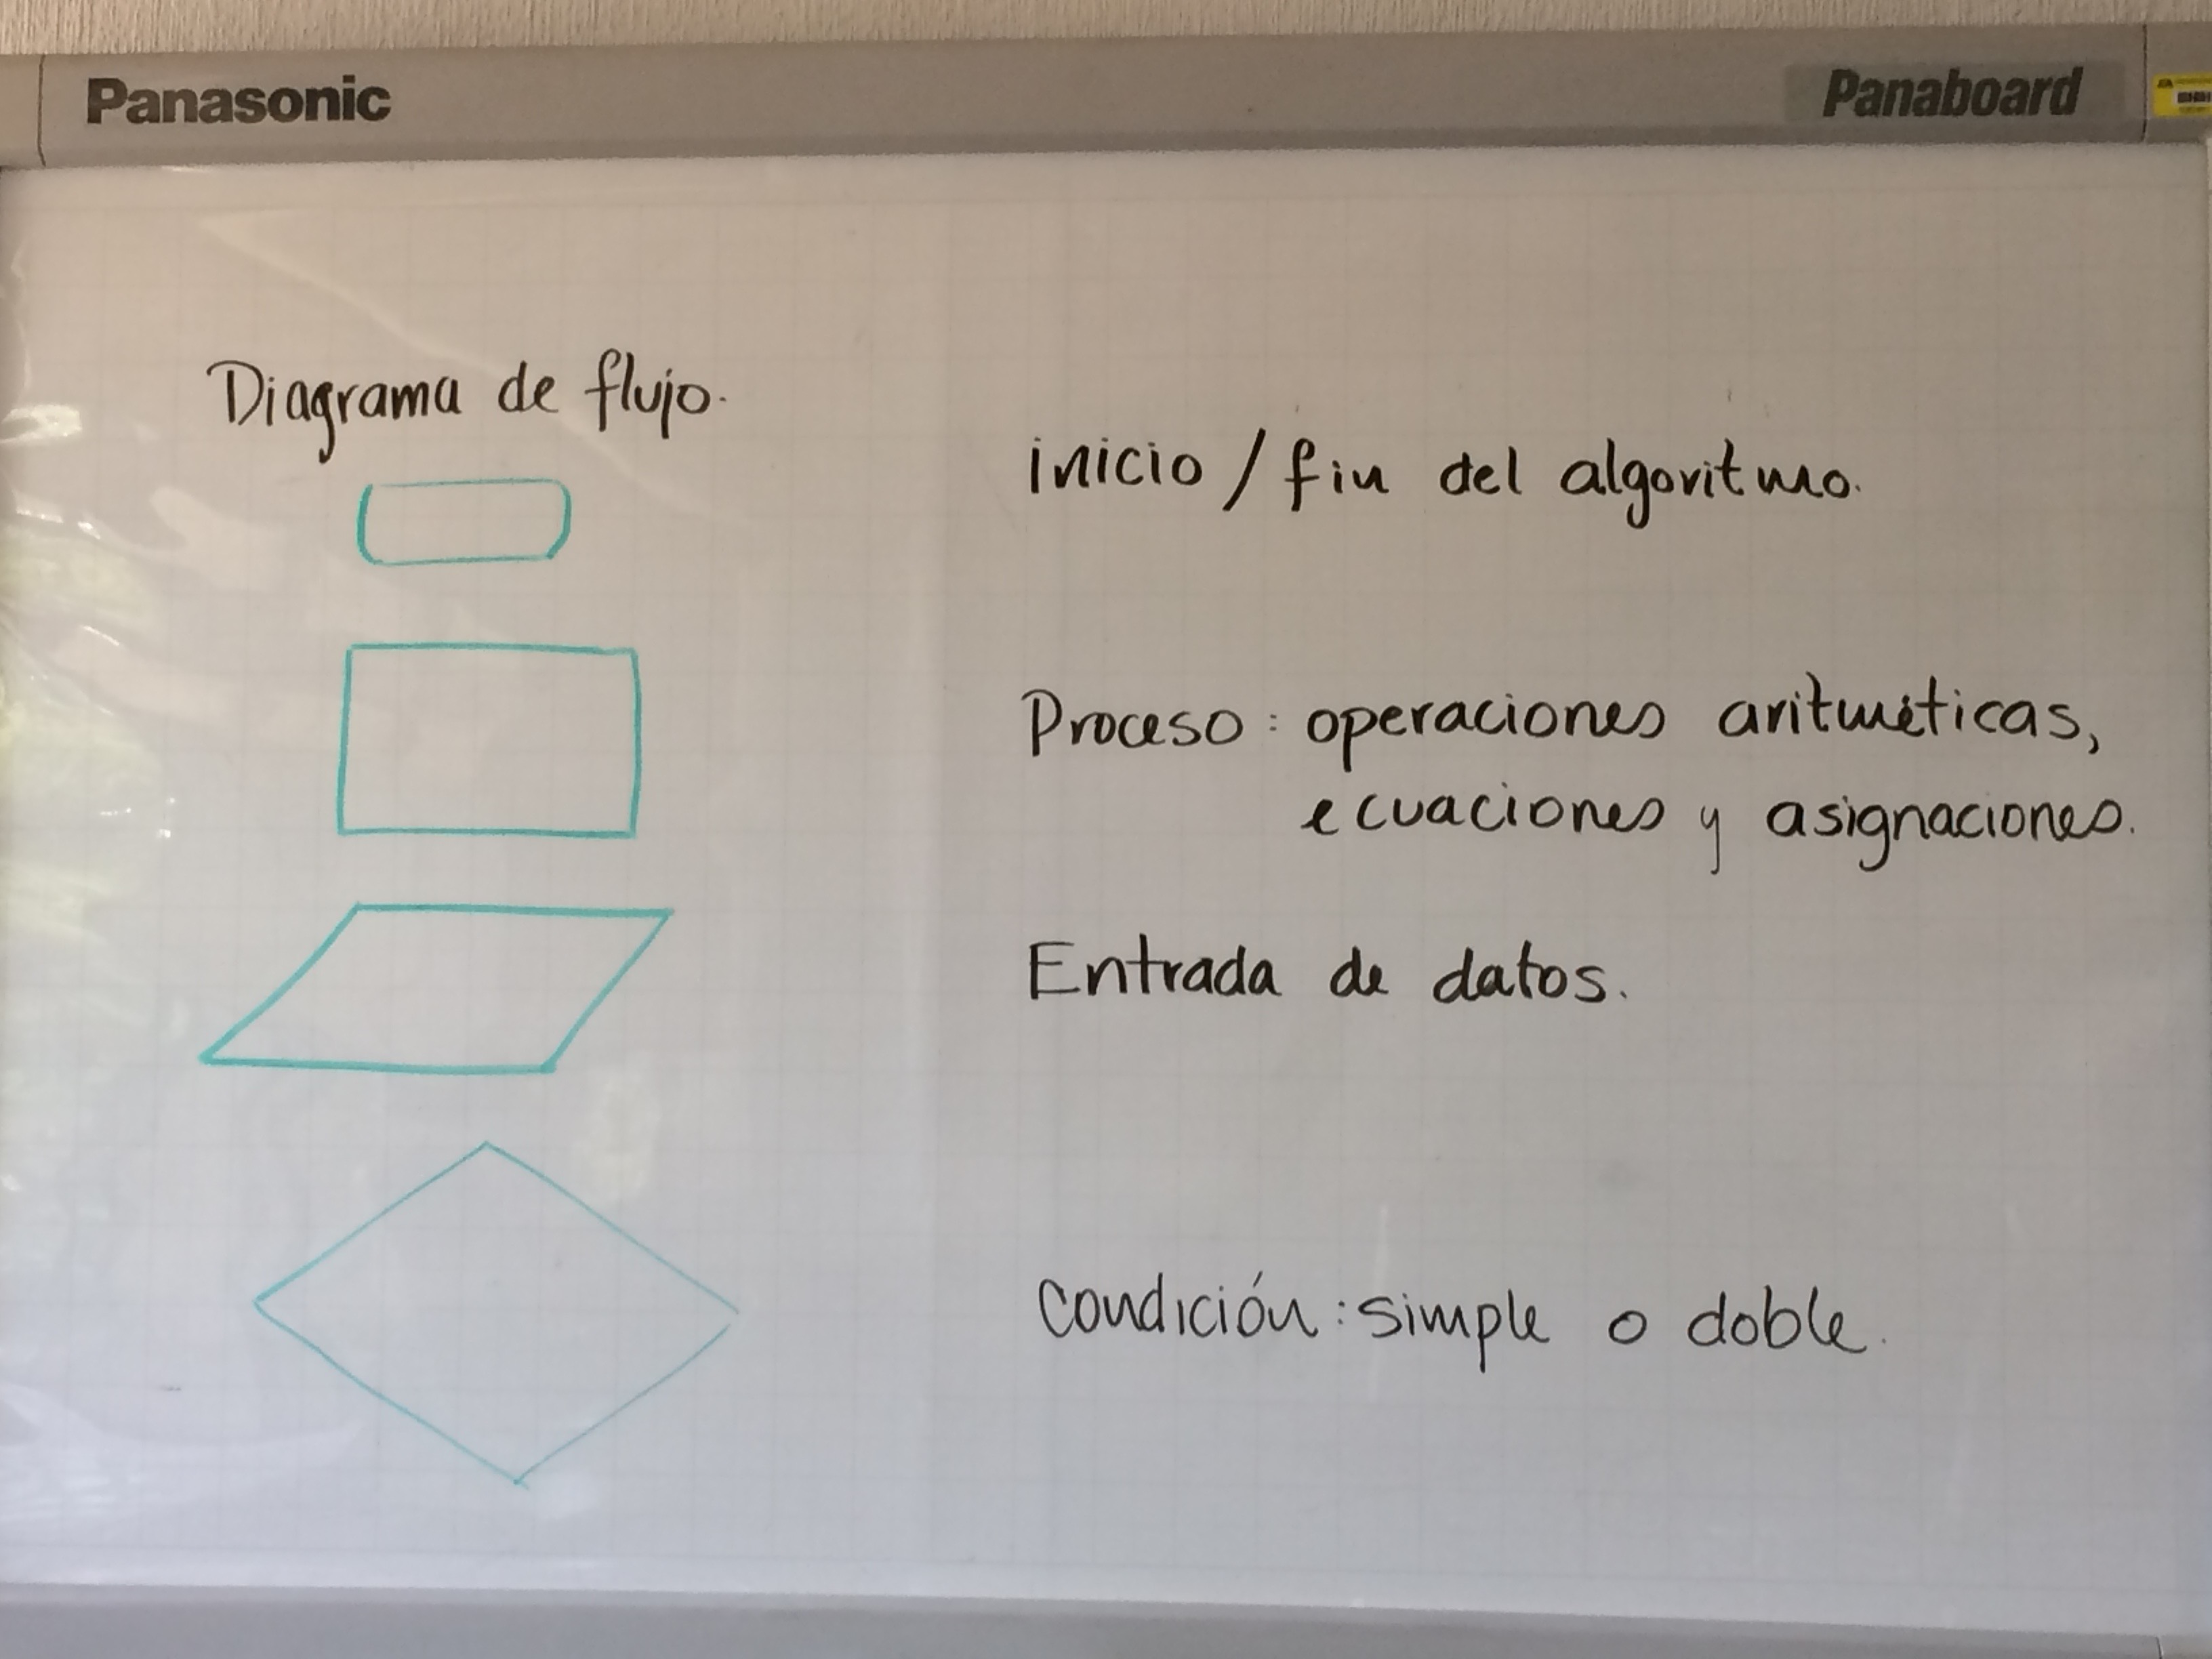 Panasonic
Panaboard
Diagrama de flujo.
inicio / fin del algoritmo.
Proceso : operaciones aritméticas,
ecuaciones y asignaciones.
Entrada de datos.
Condición : simple o doble.